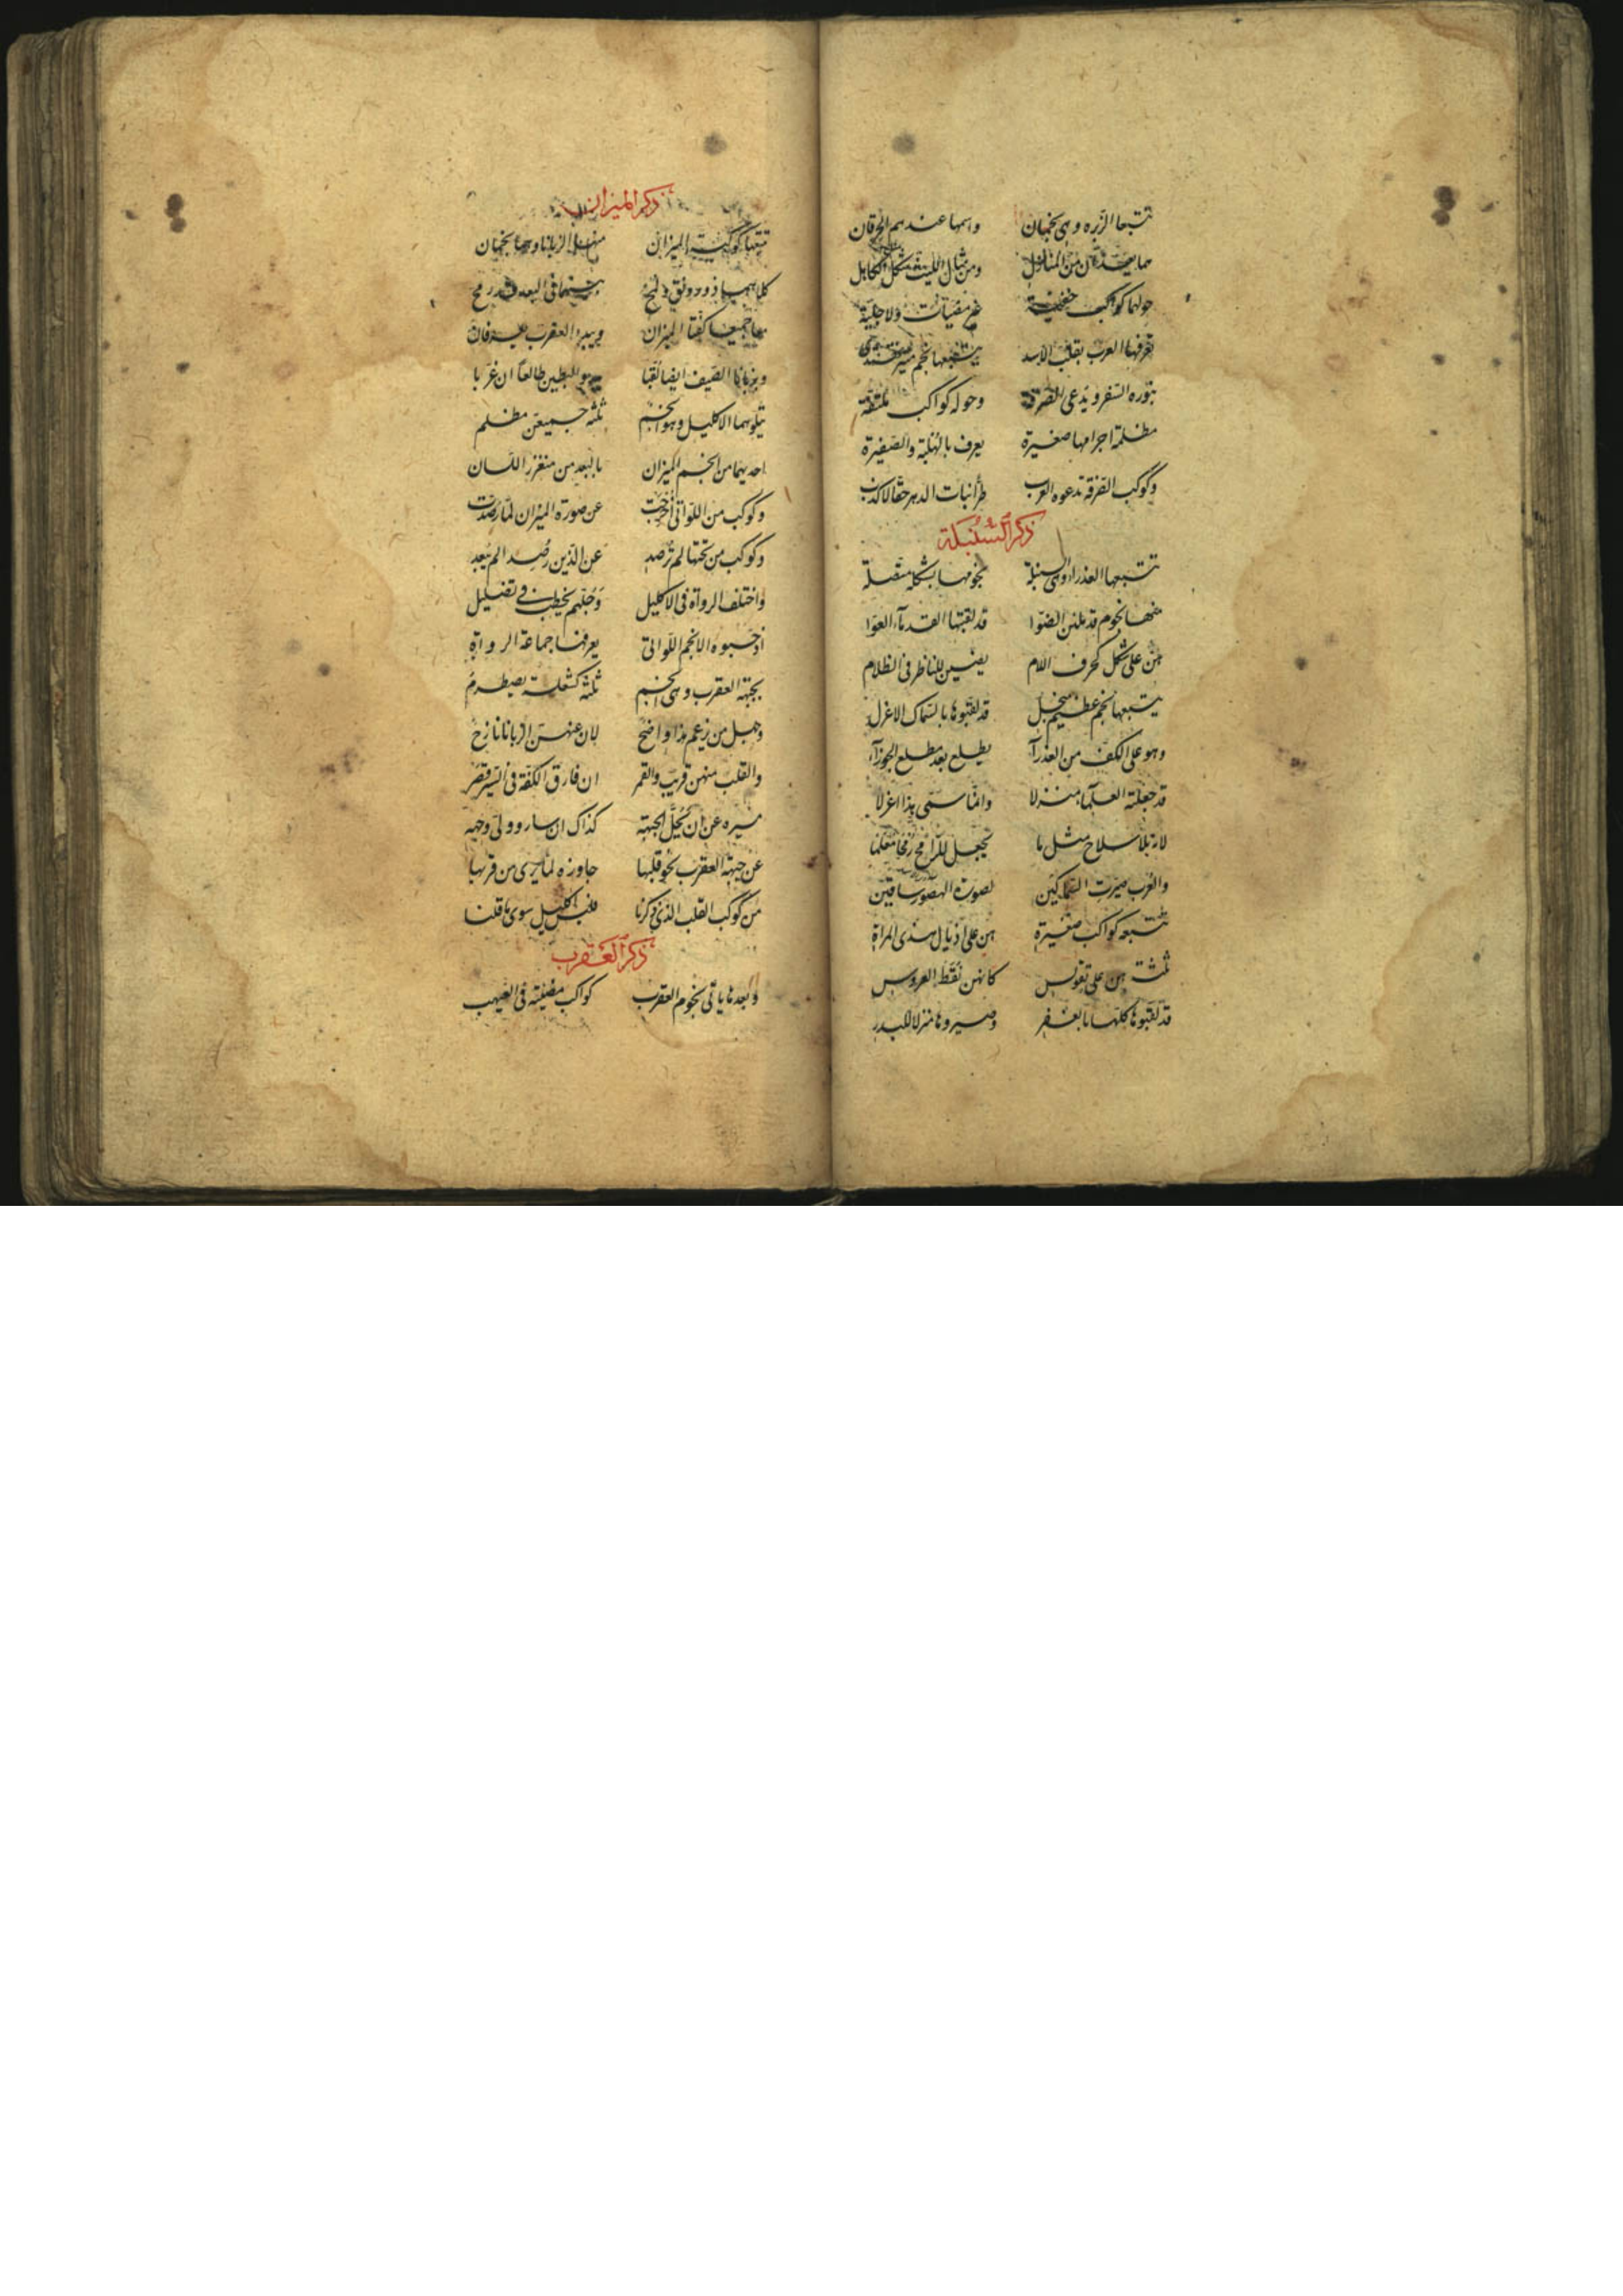 تتبعها الزبره وهي نجمان واسمها عندهم الخرقان
هما يعدان من المنازل ومن مثال الليث شكل الكاهل
حولهما كواكب خفية غير مضيآت ولا جلية
تعرفها العرب بقلب الاسد يتبعها نجم منير
بنوره السفر ويدعى الصرفة وحوله كواكب ملتفة
مظلمة اجرامها صغيرة يعرف بالهلبة والضفيرة
وكوكب الصرفة تدعوه العرب طرا ناب الدهر حقا لا كذب
ذكر السنبلة
تتبعها العذراء وهي السنبلة نجومها بشكله متصلة
منها نجوم قد ملئن الضوا قد لقبتها القدماء العوا
هن على شكل كحرف اللام يضئن للناظر في الظلام
يتبعها نجم عظيم قد لقبوها بالسماك الاعزل
وهو على الكف من العذرآ يطلع بعد مطلع الجوزآ
قد جعلته العلما منزلا وانما سمى بذا اعزلا
لانه بلا سلاح مثل ما تجعل للرامح رمحا معلما
والعرب صيرت السماكين لصورة الهصور ساقين
تتبعه كواكب صغيرة هن على اذيال هذى المراة
ثلثة هن على تقويس كانهن نقط العروس
قد لقبوها كلها بالغفر وصيروها منزلا للبدر
ذكر الميزان
تتبعها كوكبة الميزان منها الزبانا وهما نجمان
كلاهما ذو رونق بينهما في البعد قدر رمح
هما جميعا كفتا الميزان ويد العقرب يعرفان
وبزبانا الصيف ايضا لقبا هو البطين طالعا ان غربا
يتلوهما الاكليل وهو انجم ثلثة جميعهن مظلم
احديها من انجم الميزان بالبعد من مغرز اللسان
وكوكب من اللواتى اخرجت عن صورة الميزان لما رصدت
وكوكب من تحتها لم ترصد عن الذين رصدا لم يبعد
واختلف الرواة في الاكليل وجلهم يخطب في تضليل
اذ حسبوه الانجم اللواتى يعرفها جماعة الرواة
بجبهة العقرب وهي انجم ثلثة كشعلة تضطرم
وجهل من زعم هذا واضح لان عنهن الزبانا نازح
والقلب منهن قريب والقمر ان فارق الكفة في السير قصر
سيره عن ان يحل الجبهة كذاك ان سار وولى وجهه
عن جبهة العقرب نحو قلبها جاوزه لما يرى من قربها
من كوكب القلب الذى ذكرنا فليس اكليل سوى ما قلنا
ذكر العقرب
وبعدها ياتى نجوم العقرب كواكب مضيئة في الغيهب